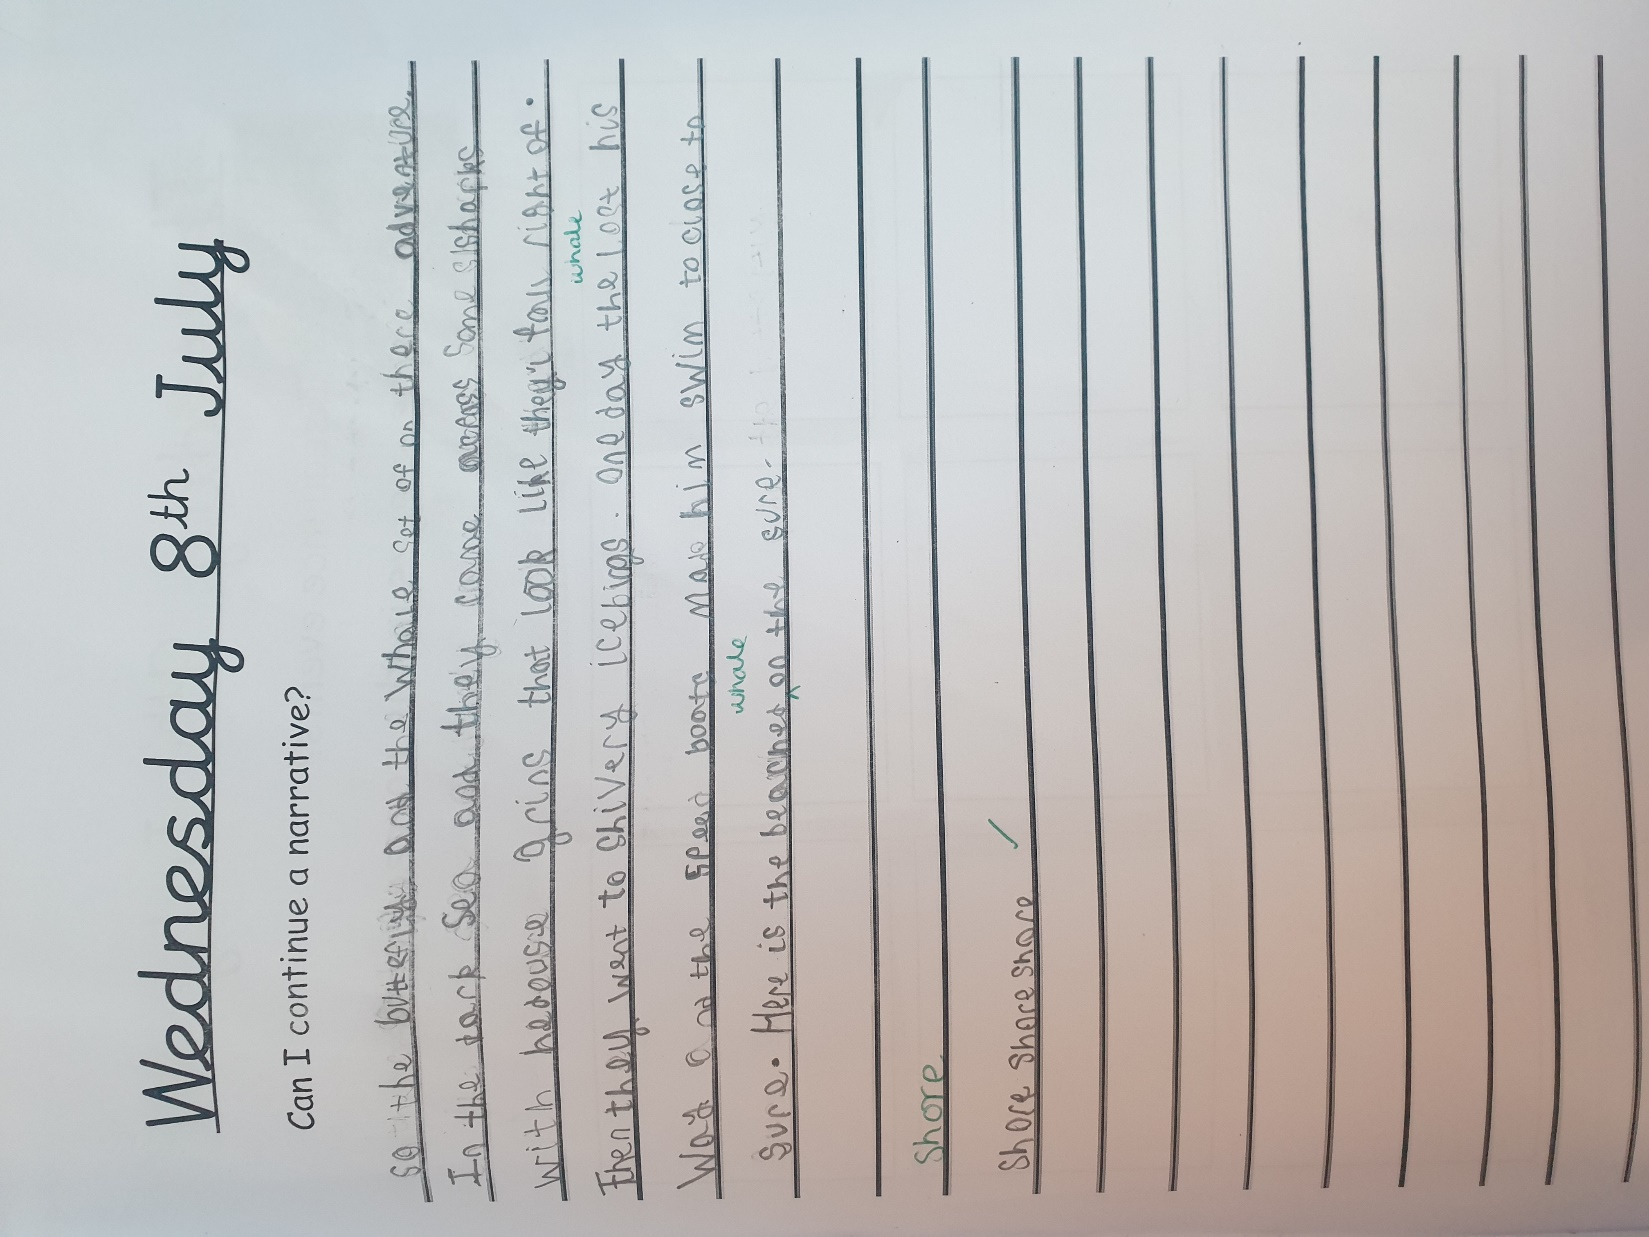 Wednesday 8th July
Can I continue a narrative?
so the butterfly and the whale set of on there adventure.
In the dark sea and they came across some sharks
with hedouse grins that look like they'r
right of.
whale
Then they went to Shivery icebirgs. one day the lost his
Way and the speed boats made him swim to close to
whale
sure. Here is the beached ^ on the sure.
Shore
Shore Shore Shore ✓